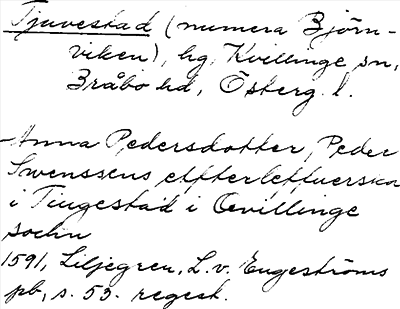 Tjuvestad (numera Björn-
viken), hg, Kvillinge sn,
Bråbo hd, Österg. l.
Anna Pedersdotter, Peder
Swenssens effterleffuerska
i Tiugestad i Qvillinge
sochn
1591, Liljegren, L. v. Engeströms
pb, s. 53. regest.